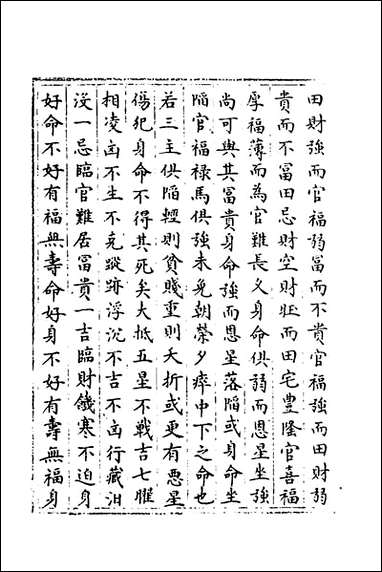 田財強而官福弱富而不貴官福強而田財弱
貴而不富田忌財空財旺而田宅豐隆官喜福
厚福薄而為官難長又身命俱弱而恩星坐強
尚可與其富貴身命強而恩星落陷或身命坐
陷官福祿馬俱強未免朝榮夕瘁中下之命也
若三主俱陷輕則貧賤重則夭折或更有惡星
傷犯身命不得其死矣大抵五星不戰吉七曜
相凌凶不生不克蹤跡浮沉不吉不凶行藏汨
沒一忌臨官難居富貴一吉臨財饑寒不迫身
好命不好有福無壽命好身不好有壽無福身